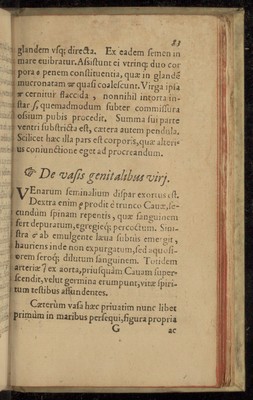 glandem vsq; directa. Ex eadem semen in
mare euibratur. Assistunt ei vtrinq; duo cor
pora e penem constituentia, quæ in glandē
mucronatam & quasi coalescunt. Virga ipsa
& cernitur flaccida, nonnihil intorta in-
star s, quemadmodum subter commissura
ossium pubis procedit. Summa sui parte
ventri substricta est, cætera autem pendula.
Scilicet hæc illa pars est corporis, quæ alteri-
us coniunctione eget ad procreandum.
De vasis genitalibus virj.
VEnarum seminalium dispar exortus est.
Dextra enim prodit è trunco Cauæ, se-
cundùm spinam repentis, quæ sanguinem
fert depuratum, egregieq; percoctum. Sini-
stra & ab emulgente læua subnis emergit,
hauriens inde non expurgatum, sed aquosi-
orem seroq; dilutum sanguinem. Totidem
arteriæ ex aorta, priusquàm Cauam super-
scendit, velut germina erumpunt, vitæ spiri-
tum testibus affundentes.
Cæterùm vasa hæc priuatim nunc libet
primùm in maribus persequi, figura propria
G ac